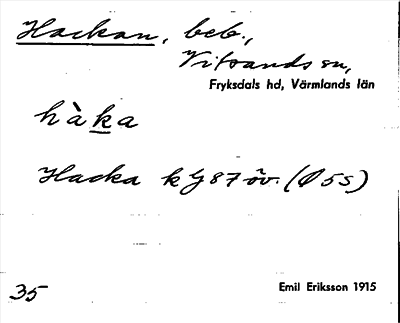 Hackan, beb.,
Vitsands sn,
Fryksdals hd, Värmlands län
hàka
Hacka kG 87 öv. (Ø 5S)
35
Emil Eriksson 1915